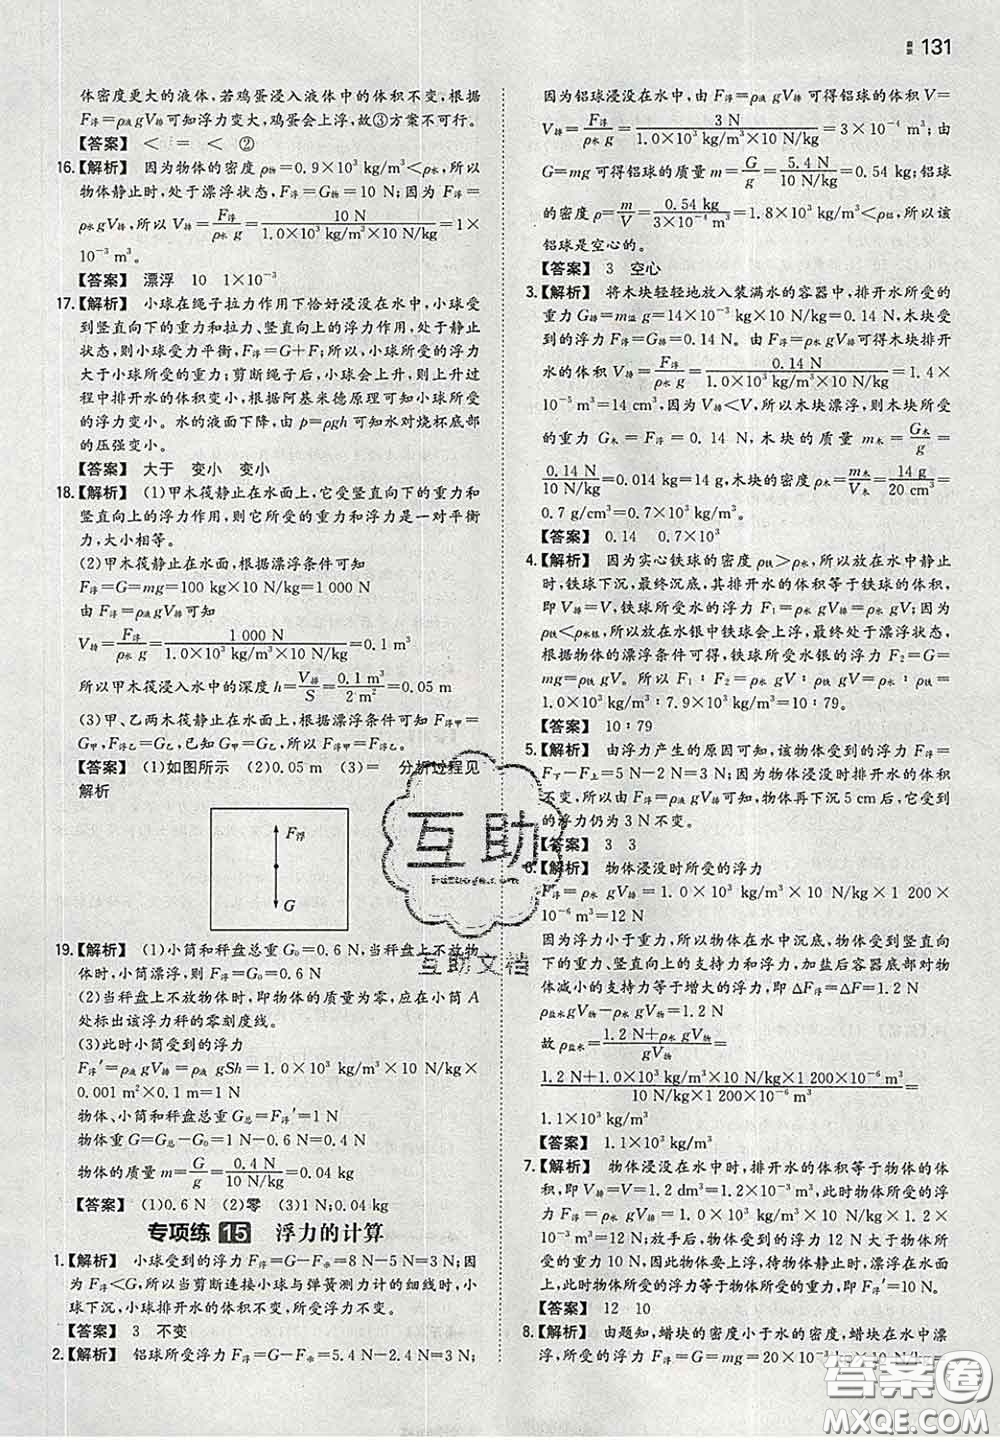 131
体密度更大的液体,若鸡蛋浸入液体中的体积不变,根据
F浮=ρ液gV排可知浮力变大,鸡蛋会上浮,故③方案不可行。
【答案】 < = < ②
16.【解析】 因为物体的密度ρ物=0.9×10³ kg/m³<ρ水,所以
物体静止时,处于漂浮状态,F浮=G物=10 N;因为F浮=
ρ水gV排,所以V排=F浮/(ρ水 g)=10 N/(1.0×10³ kg/m³×10 N/kg)=1×
10⁻³ m³。
【答案】 漂浮 10 1×10⁻³
17.【解析】 小球在绳子拉力作用下恰好浸没在水中,小球受
到竖直向下的重力和拉力、竖直向上的浮力作用,处于静止
状态,则小球受力平衡,F浮=G+F;所以,小球所受的浮力
大于小球所受的重力;剪断绳子后,小球会上升,则上升过
程中排开水的体积变小,根据阿基米德原理可知小球所受
的浮力变小。水的液面下降,由p=ρgh可知水对烧杯底部
的压强变小。
【答案】 大于 变小 变小
18.【解析】 (1)甲木筏静止在水面上,它受竖直向下的重力和
竖直向上的浮力作用,则它所受的重力和浮力是一对平衡
力,大小相等。
(2)甲木筏静止在水面,根据漂浮条件可知
F浮=G=mg=100 kg×10 N/kg=1 000 N
由F浮=ρ液gV排可知
V排=F浮/(ρ水 g)=1 000 N/(1.0×10³ kg/m³×10 N/kg)=0.1 m³
所以甲木筏浸入水中的深度h=V排/S=0.1 m³/2 m²=0.05 m
(3)甲、乙两木筏静止在水面上,根据漂浮条件可知F浮甲=
G甲,F浮乙=G乙,已知G甲=G乙,所以F浮甲=F浮乙。
【答案】 (1)如图所示 (2)0.05 m (3)= 分析过程见
解析
F浮
G
19.【解析】 (1)小筒和秤盘总重G₀=0.6 N,当秤盘上不放物
体时,小筒漂浮,则F浮=G₀=0.6 N
(2)当秤盘上不放物体时,即物体的质量为零,应在小筒A
处标出该浮力秤的零刻度线。
(3)此时小筒受到的浮力
F浮′=ρ液gV排=ρ液gSh=1.0×10³ kg/m³×10 N/kg×
0.001 m²×0.1 m=1 N
物体、小筒和秤盘总重G总=F浮′=1 N
物体重G=G总-G₀=1 N-0.6 N=0.4 N
物体的质量m=G/g=0.4 N/(10 N/kg)=0.04 kg
【答案】 (1)0.6 N (2)零 (3)1 N;0.04 kg
专项练 15 浮力的计算
1.【解析】 小球受到的浮力F浮=G-F示=8 N-5 N=3 N;因
为F浮<G,所以当剪断连接小球与弹簧测力计的细线时,小
球下沉,小球排开水的体积不变,所受浮力不变。
【答案】 3 不变
2.【解析】 铝球所受浮力F浮=G-F示=5.4 N-2.4 N=3 N;
因为铝球浸没在水中,由F浮=ρ液gV排可得铝球的体积V=
V排=F浮/(ρ水 g)=3 N/(1.0×10³ kg/m³×10 N/kg)=3×10⁻⁴ m³;由
G=mg可得铝球的质量m=G/g=5.4 N/(10 N/kg)=0.54 kg,铝球
的密度ρ=m/V=0.54 kg/(3×10⁻⁴ m³)=1.8×10³ kg/m³<ρ铝,所以该
铝球是空心的。
【答案】 3 空心
3.【解析】 将木块轻轻地放入装满水的容器中,排开水所受的
重力G排=m溢g=14×10⁻³ kg×10 N/kg=0.14 N,木块受
到的浮力F浮=G排=0.14 N。由F浮=ρ水gV排可得木块排开
水的体积V排=F浮/(ρ水 g)=0.14 N/(1.0×10³ kg/m³×10 N/kg)=1.4×
10⁻⁵ m³=14 cm³,因为V排<V,所以木块漂浮,则木块所受
的重力G木=F浮=0.14 N,木块的质量m木=G木/g=
0.14 N/(10 N/kg)=0.014 kg=14 g,木块的密度ρ木=m木/V木=14 g/20 cm³=
0.7 g/cm³=0.7×10³ kg/m³。
【答案】 0.14 0.7×10³
4.【解析】 因为实心铁球的密度ρ铁>ρ水,所以放在水中静止
时,铁球下沉,最终沉底,其排开水的体积等于铁球的体积,
即V排=V,铁球所受水的浮力F₁=ρ水gV排=ρ水gV;因为
ρ铁<ρ水银,所以放在水银中铁球会上浮,最终处于漂浮状态,
根据物体的漂浮条件可得,铁球所受水银的浮力F₂=G=
mg=ρ铁gV。所以F₁∶F₂=ρ水gV∶ρ铁gV=ρ水∶ρ铁=
1.0×10³ kg/m³∶7.9×10³ kg/m³=10∶79。
【答案】 10∶79
5.【解析】 由浮力产生的原因可知,该物体受到的浮力F浮=
F下-F上=5 N-2 N=3 N;因为物体浸没时排开水的体积
不变,所以由F浮=ρ液gV排可知,物体再下沉5 cm后,受到
的浮力仍为3 N不变。
【答案】 3 3
6.【解析】 物体浸没时所受的浮力
F浮=ρ水 gV排=ρ水 gV物=1.0×10³ kg/m³×10 N/kg×1 200×
10⁻⁶ m³=12 N
因为浮力小于重力,所以物体在水中沉底,物体所受的重力
等于竖直向上的支持力和浮力,加盐后容器底部对物体
减小的支持力等于增大的浮力,即ΔF浮=ΔF=1.2 N
ρ盐水gV物-ρ水gV物=1.2 N
故ρ盐水=(1.2 N+ρ水 gV物)/gV物=
(1.2 N+1.0×10³ kg/m³×10 N/kg×1 200×10⁻⁶ m³)/(10 N/kg×1 200×10⁻⁶ m³)=
1.1×10³ kg/m³
【答案】 1.1×10³ kg/m³
7.【解析】 物体浸没在水中时,排开水的体积等于物体的体
积,即V排=V
10 N/kg×
=12 N。放手后,物体受到的浮力12 N大于物体所受的重
力10 N,所以物体要上浮,待物体静止时,漂浮在水面上,
因此,此时物体所受的浮力等于物体所受的重力,即F浮′=10 N。
【答案】 12 10
8.【解析】 由题知,蜡块的密度小于水的密度,蜡块在水中漂
浮,所受的浮力F浮=G=mg=20×10⁻³ kg
互助
互助文档
答案圈
MXQE.COM